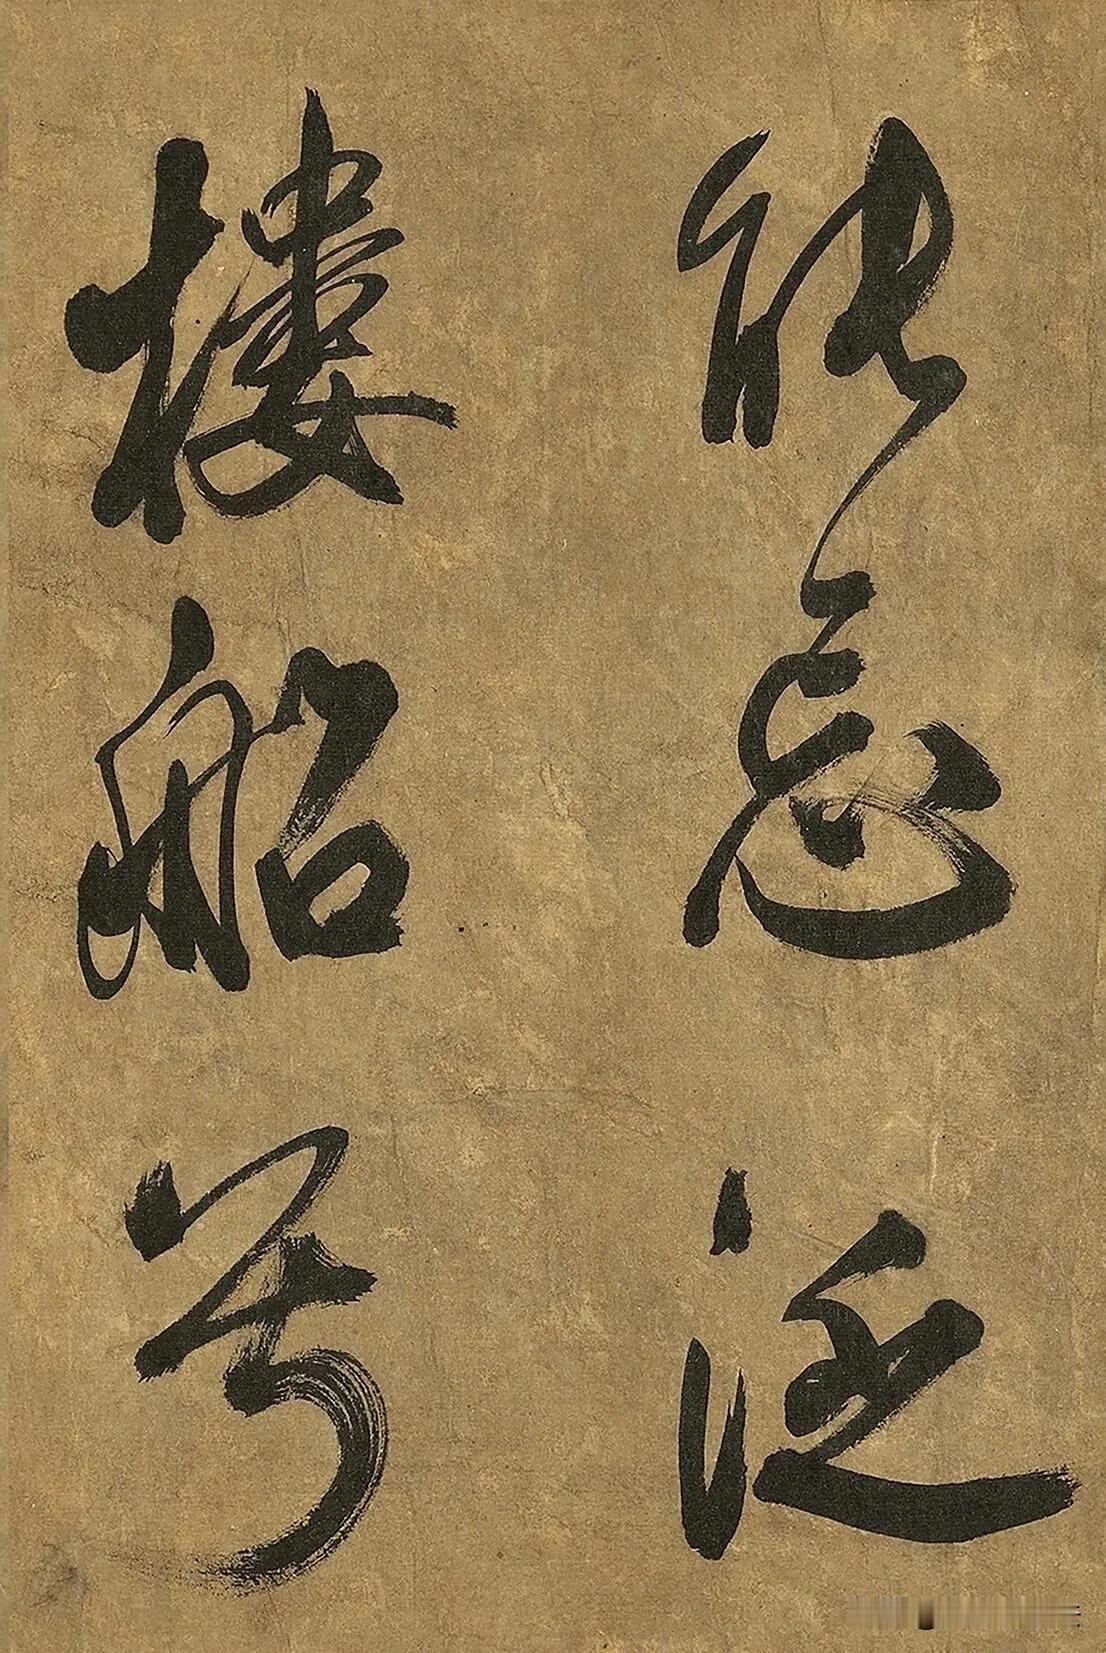 能忘泛
樓船兮